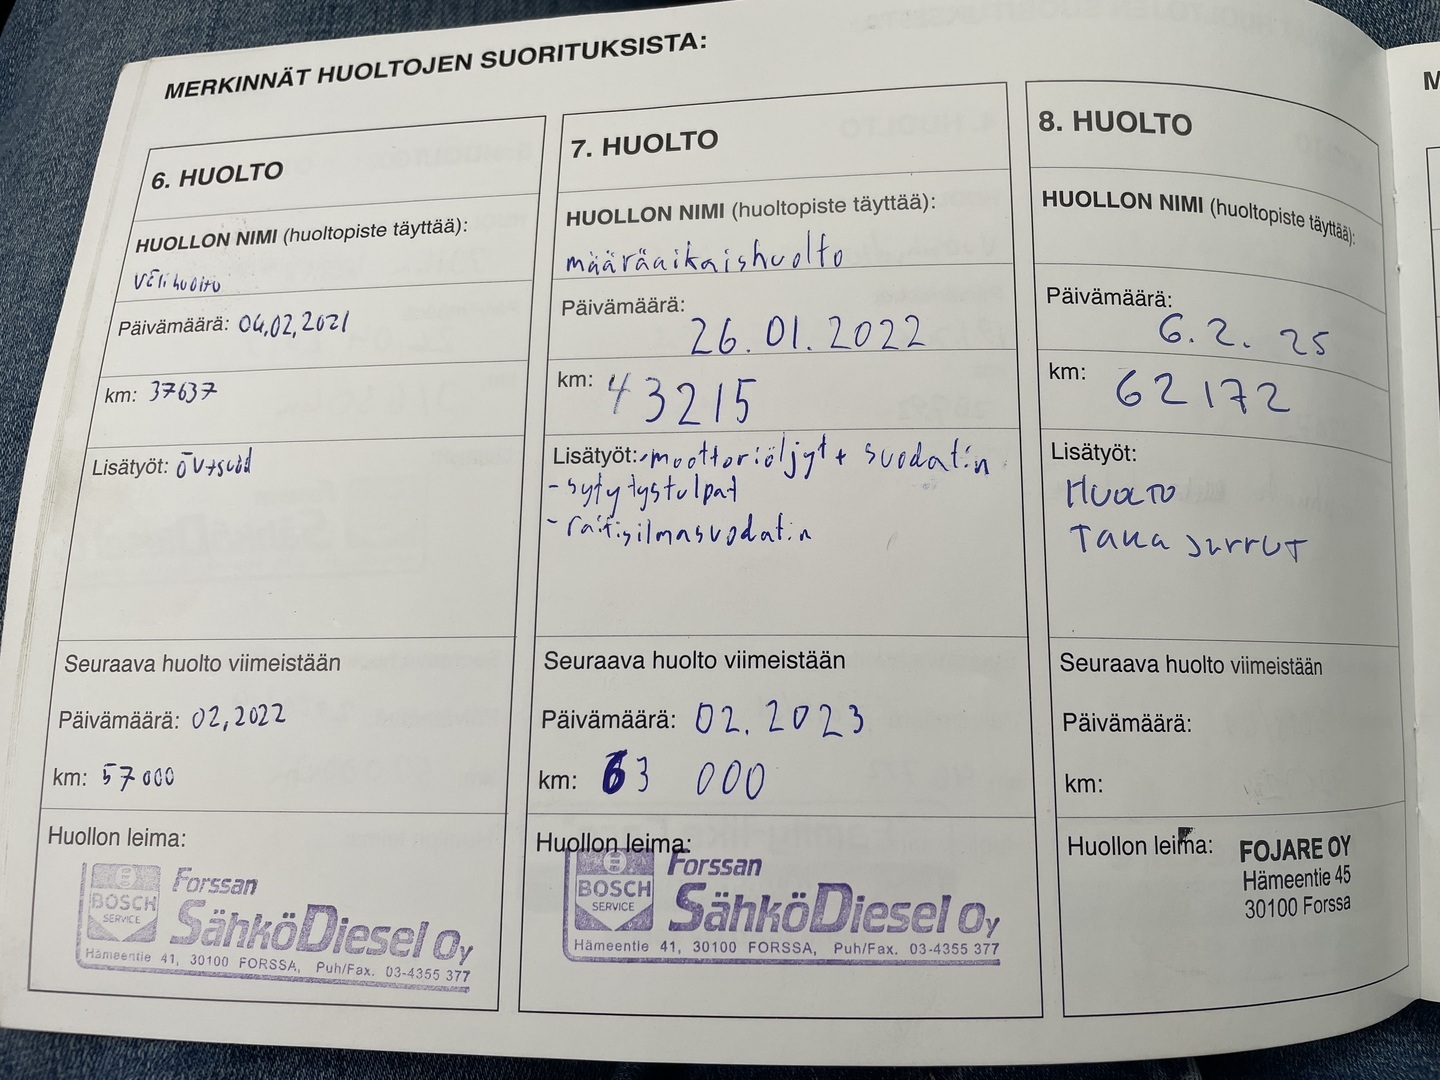 MERKINNÄT HUOLTOJEN SUORITUKSISTA:
6. HUOLTO
HUOLLON NIMI (huoltopiste täyttää):
VÄlihuolto
Päivämäärä: 04.02.2021
km: 37637
Lisätyöt: ÖV+suod
Seuraava huolto viimeistään
Päivämäärä: 02,2022
km: 57000
Huollon leima:
BOSCH
SERVICE
Forssan
SähköDiesel Oy
Hämeentie 41, 30100 FORSSA, Puh/Fax. 03-4355 377
7. HUOLTO
HUOLLON NIMI (huoltopiste täyttää):
määräaikaishuolto
Päivämäärä:
26.01.2022
km: 43215
Lisätyöt: -moottoriöljyt + suodatin
- sytytystulpat
- raitisilmasuodatin
Seuraava huolto viimeistään
Päivämäärä: 02.2023
km: 63 000
Huollon leima:
BOSCH
SERVICE
Forssan
SähköDiesel Oy
Hämeentie 41, 30100 FORSSA, Puh/Fax. 03-4355 377
8. HUOLTO
HUOLLON NIMI (huoltopiste täyttää):
Päivämäärä:
6.2. 25
km: 62172
Lisätyöt:
HUOLTO
TAKA JARRUT
Seuraava huolto viimeistään
Päivämäärä:
km:
Huollon leima:
FOJARE OY
Hämeentie 45
30100 Forssa